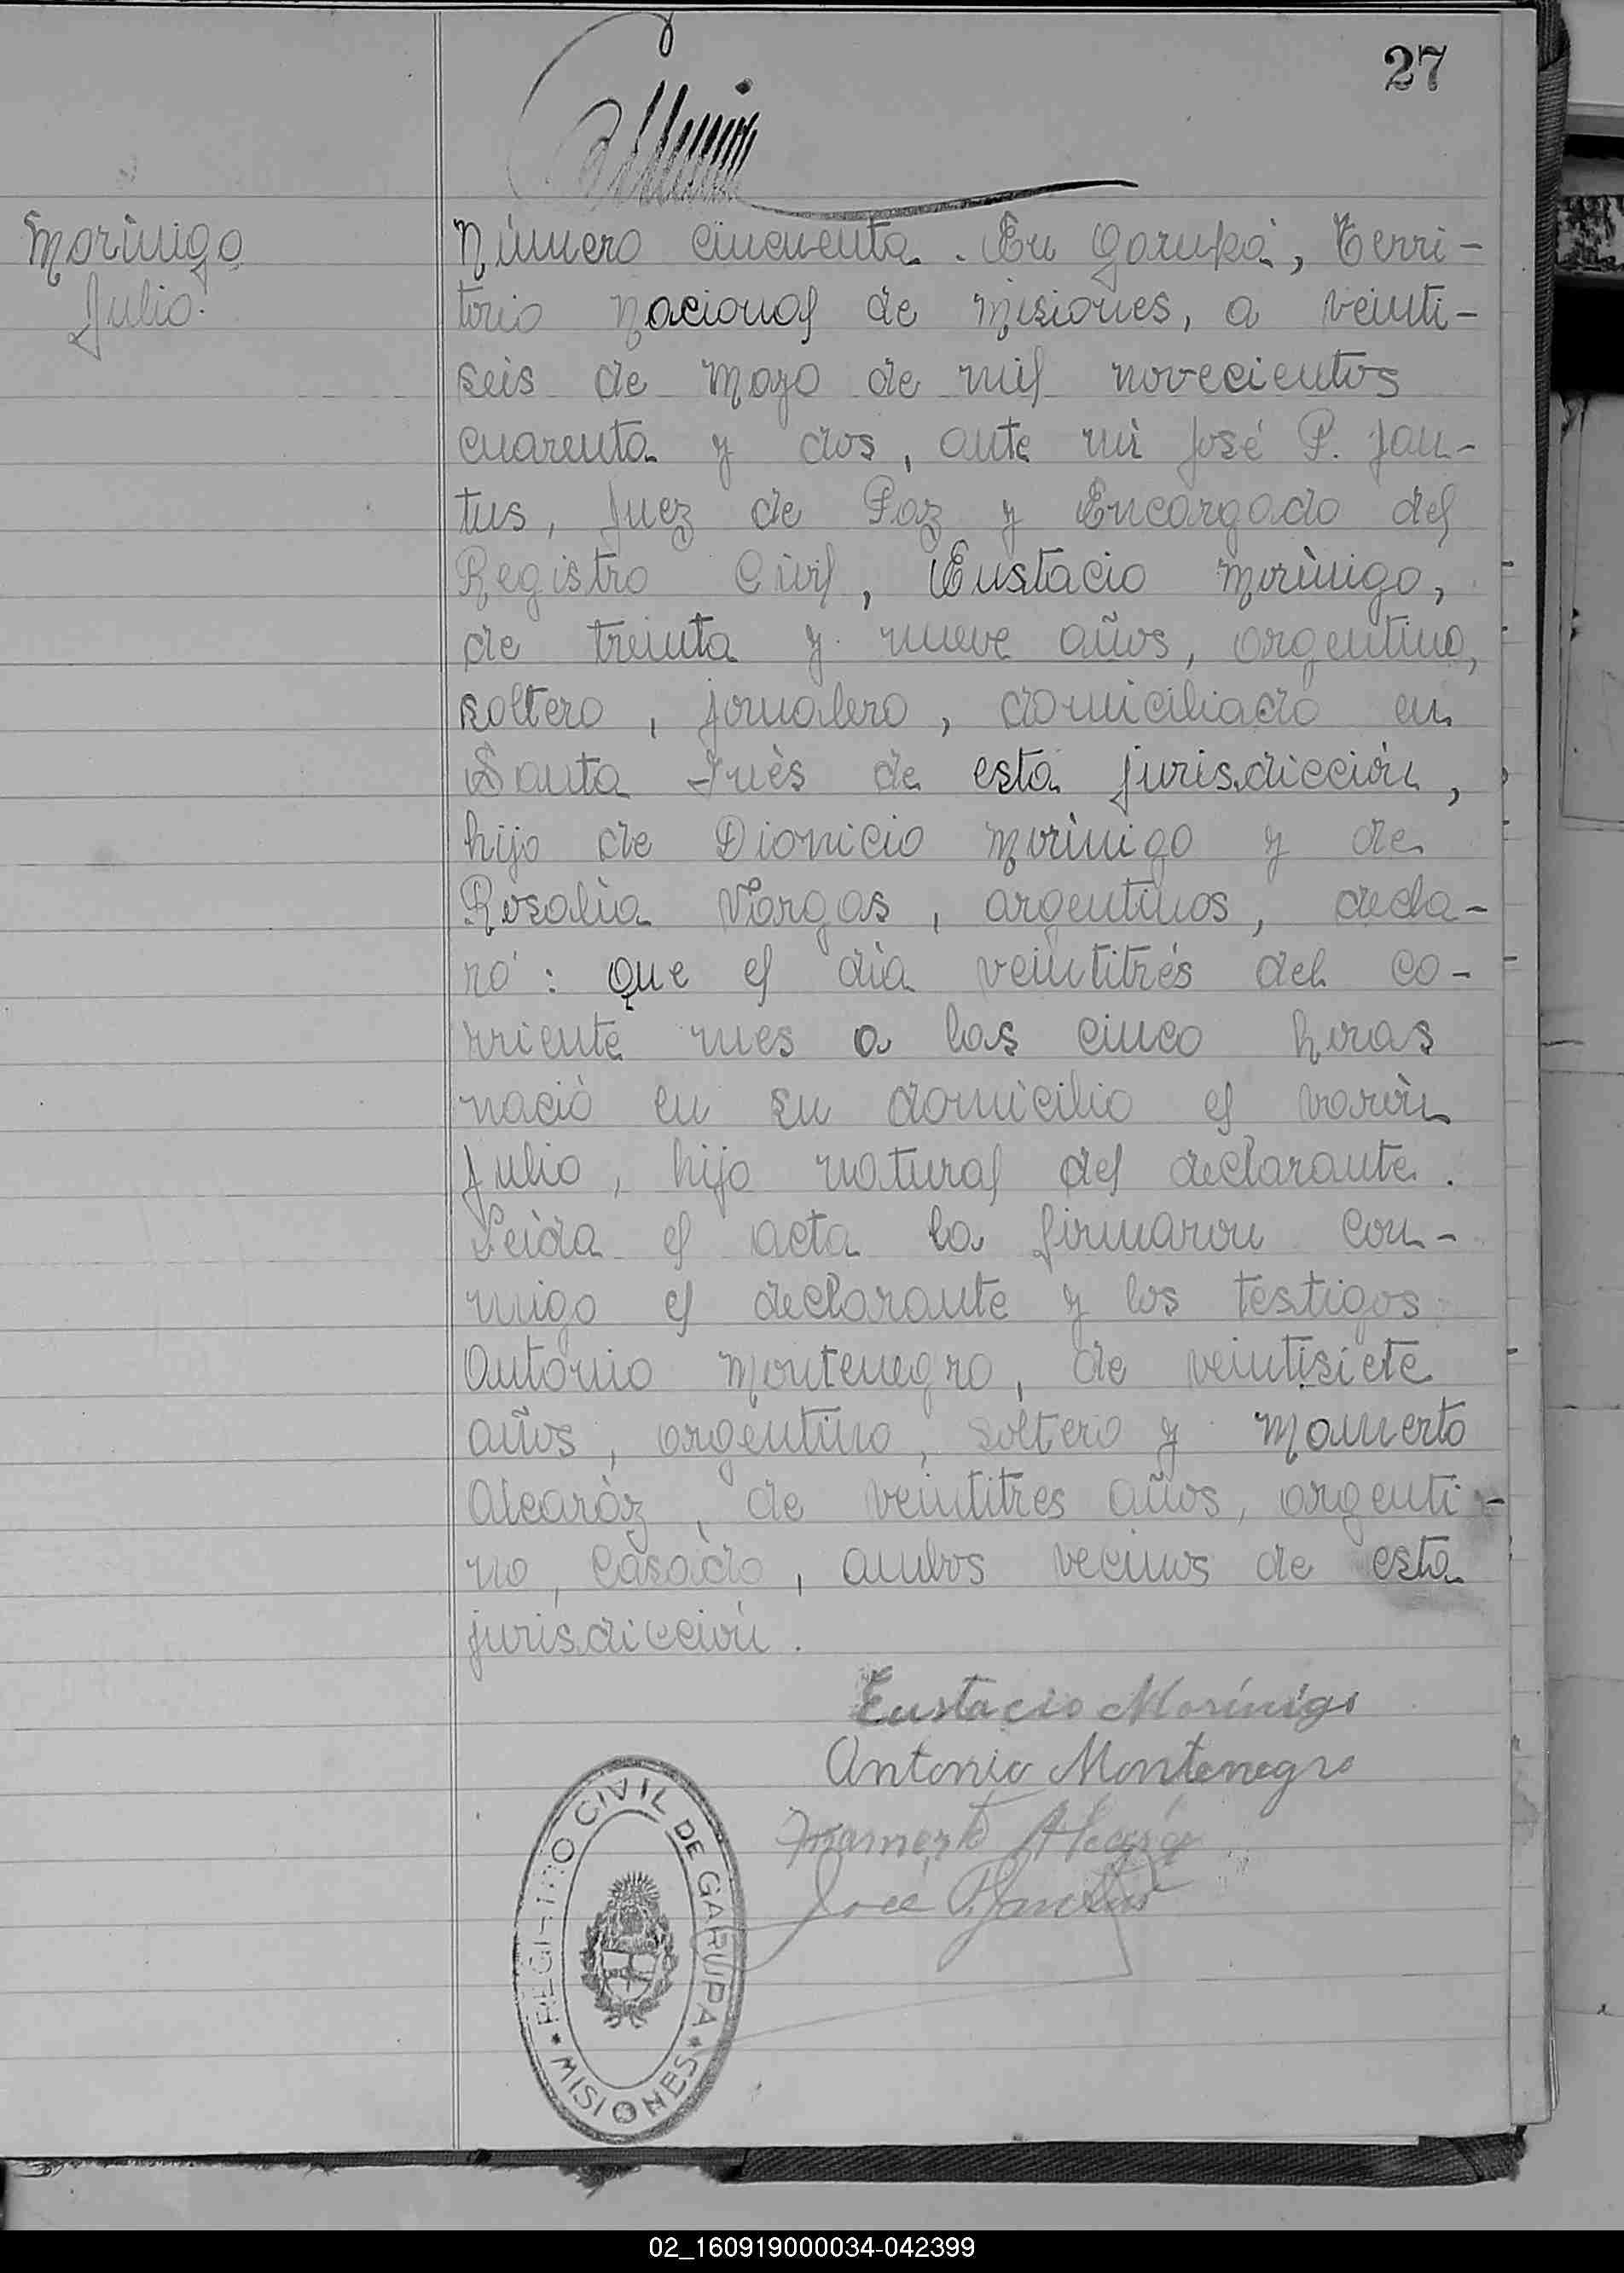 27
Morìnigo
Julio.
Número cincuenta. En Garupá, Terri-
torio Nacional de Misiones, a veinti-
seis de Mayo de mil novecientos
cuarenta y dos, ante mi José P. Jan-
tus, Juez de Paz y Encargado del
Registro Civil, Eustacio Morìnigo,
de treinta y nueve años, argentino,
soltero, jornalero, domiciliado en
Santa Inès de esta jurisdicción,
hijo de Dionicio Morìnigo y de
Rosalìa Vargas, argentinos, decla-
ró: Que el dìa veintitrés del co-
rriente mes a las cinco horas
naciò en su domicilio el varòn
Julio, hijo natural del declarante.
Leìda el acta la firmaron con-
migo el declarante y los testigos
Antonio Montenegro, de veintisiete
años, argentino, soltero y Mamerto
Alcaràz, de veintitres años, argenti-
no, casado, ambos vecinos de esta
jurisdicción.
Eustacio Morínigo
Antonio Montenegro
Mamerto Alcaráz
José P. Jantus
REGISTRO CIVIL DE GARUPA
* MISIONES *
02_160919000034-042399